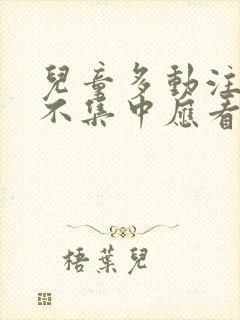 兒童多動注
不集中應看
梧葉兒